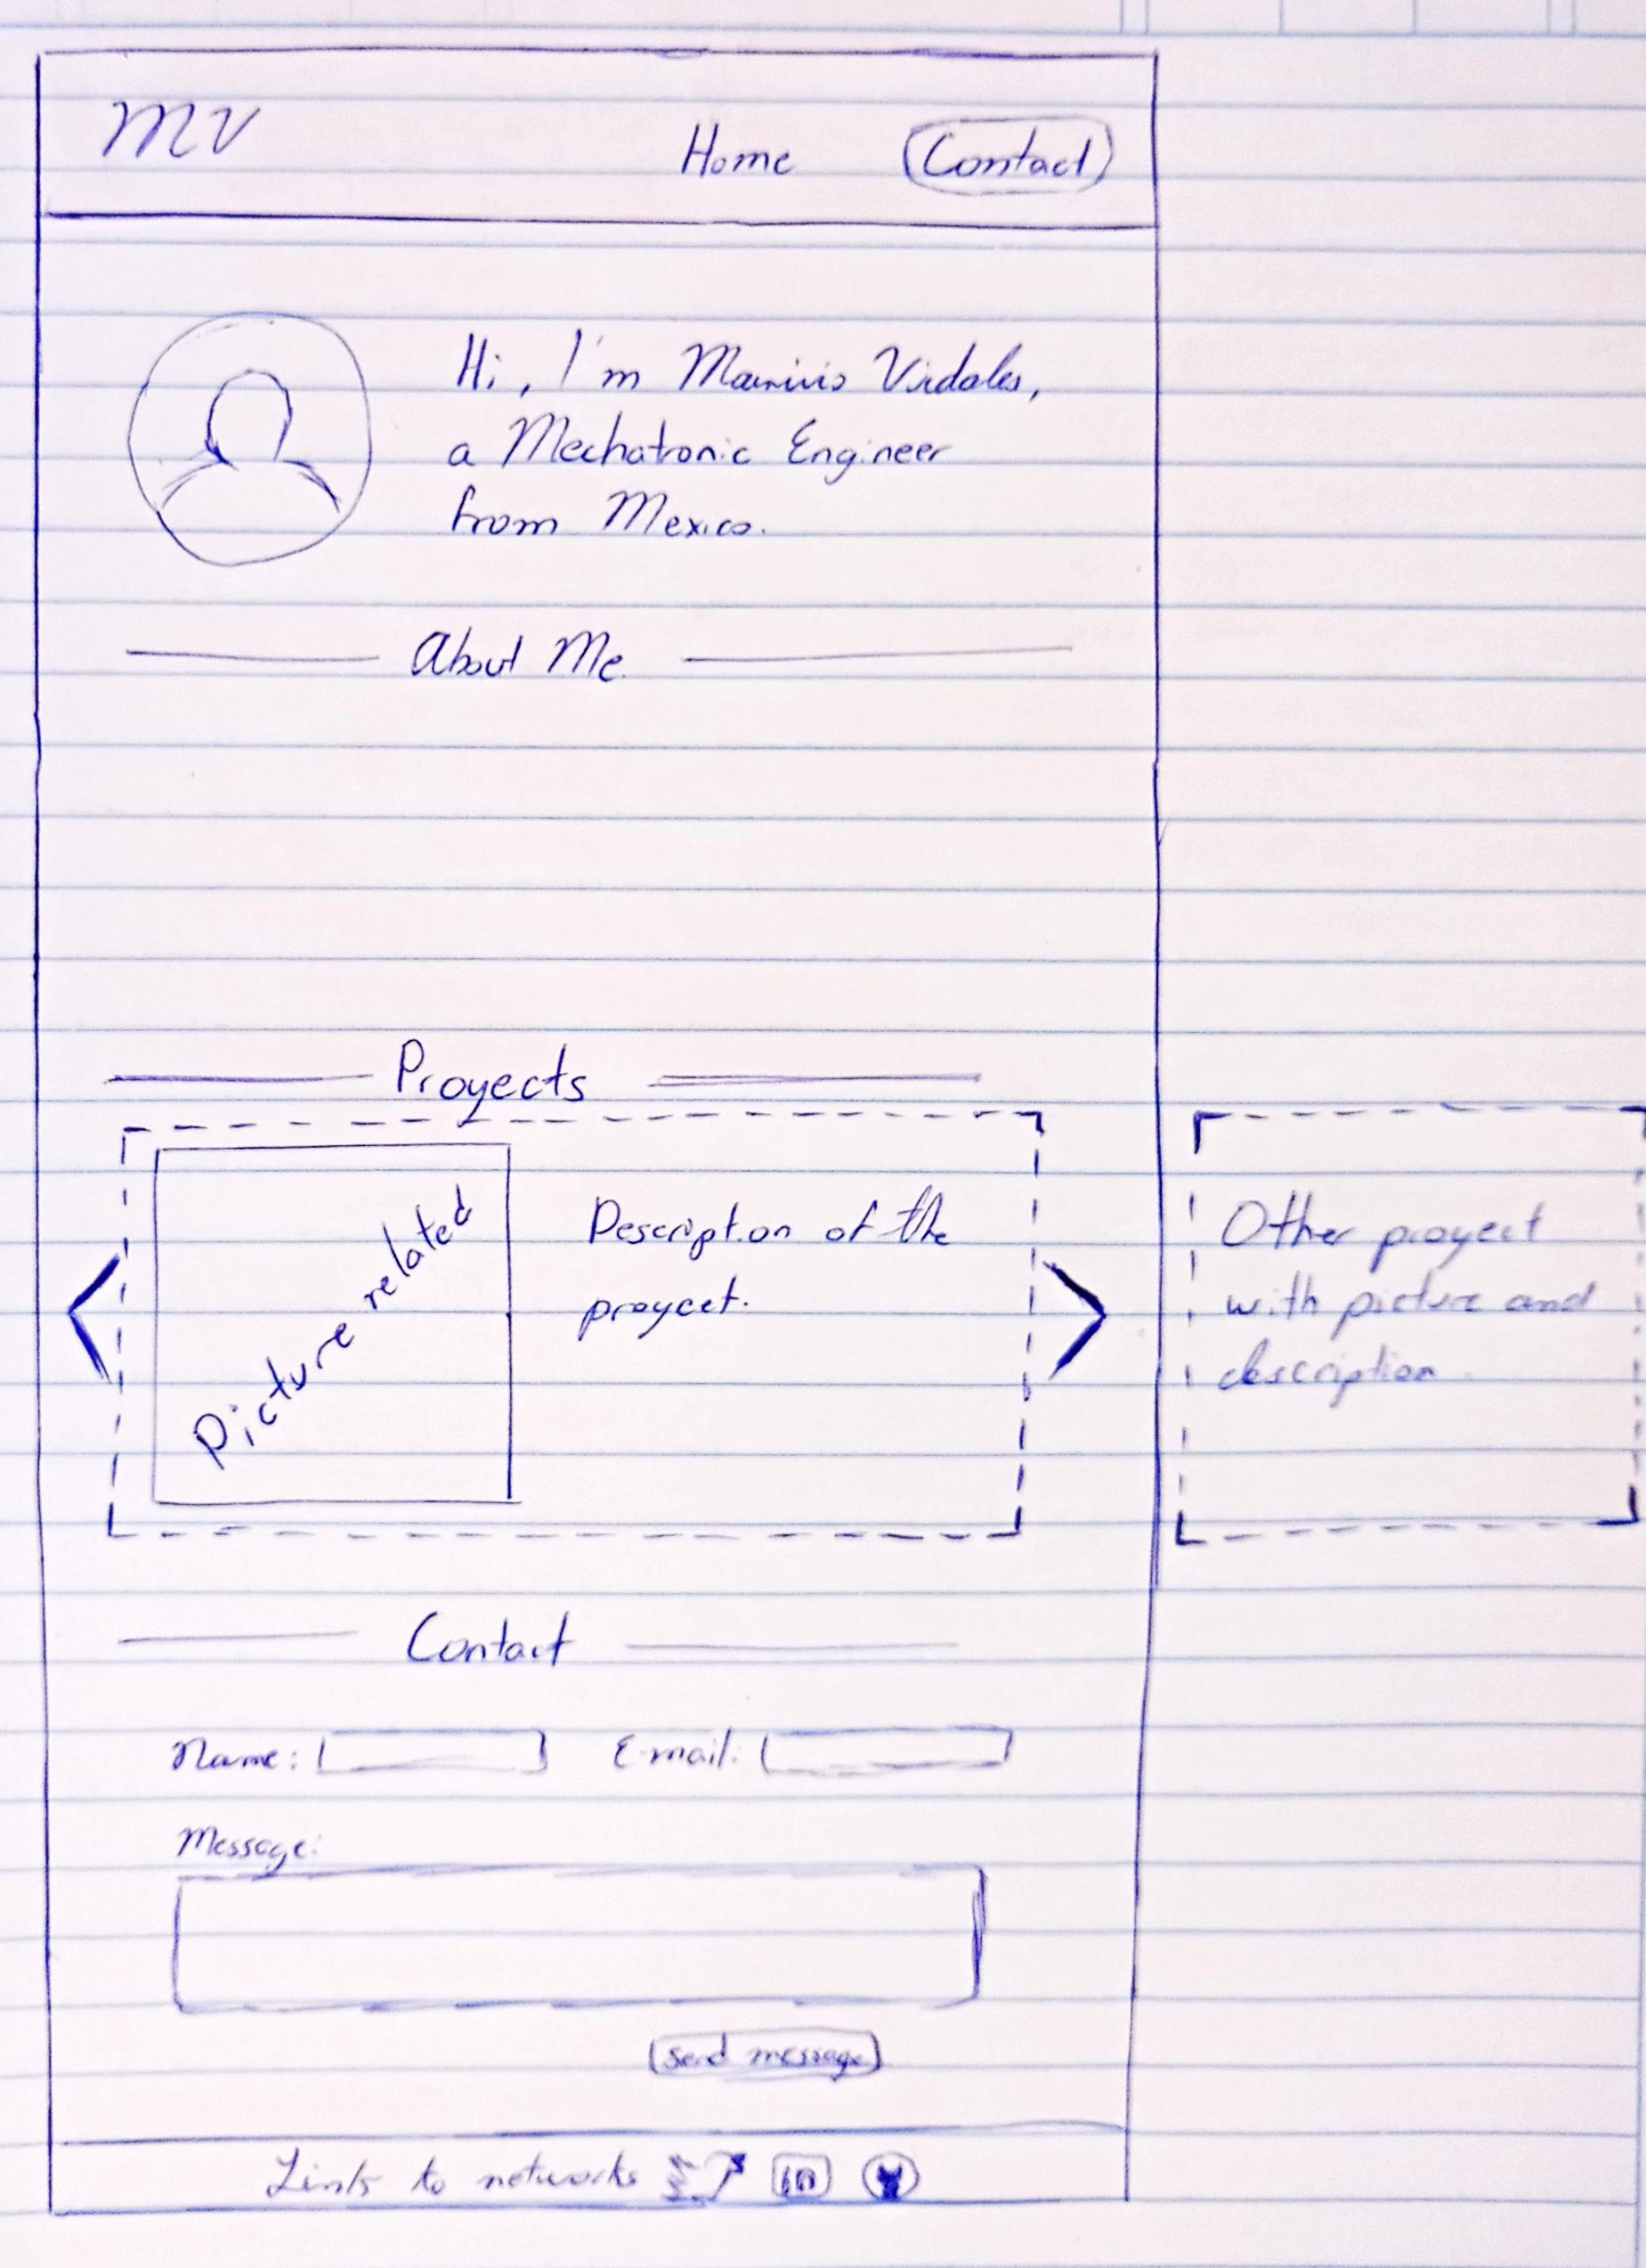 MV
Home
Contact
Hi, I'm Mauricio
a Mechatronic Engineer
from Mexico.
About Me
Proyects
Picture related
Description of the
proyect.
Other proyect
with picture and
description
Contact
Name:
E-mail:
Message:
Send message
Links to networks
in